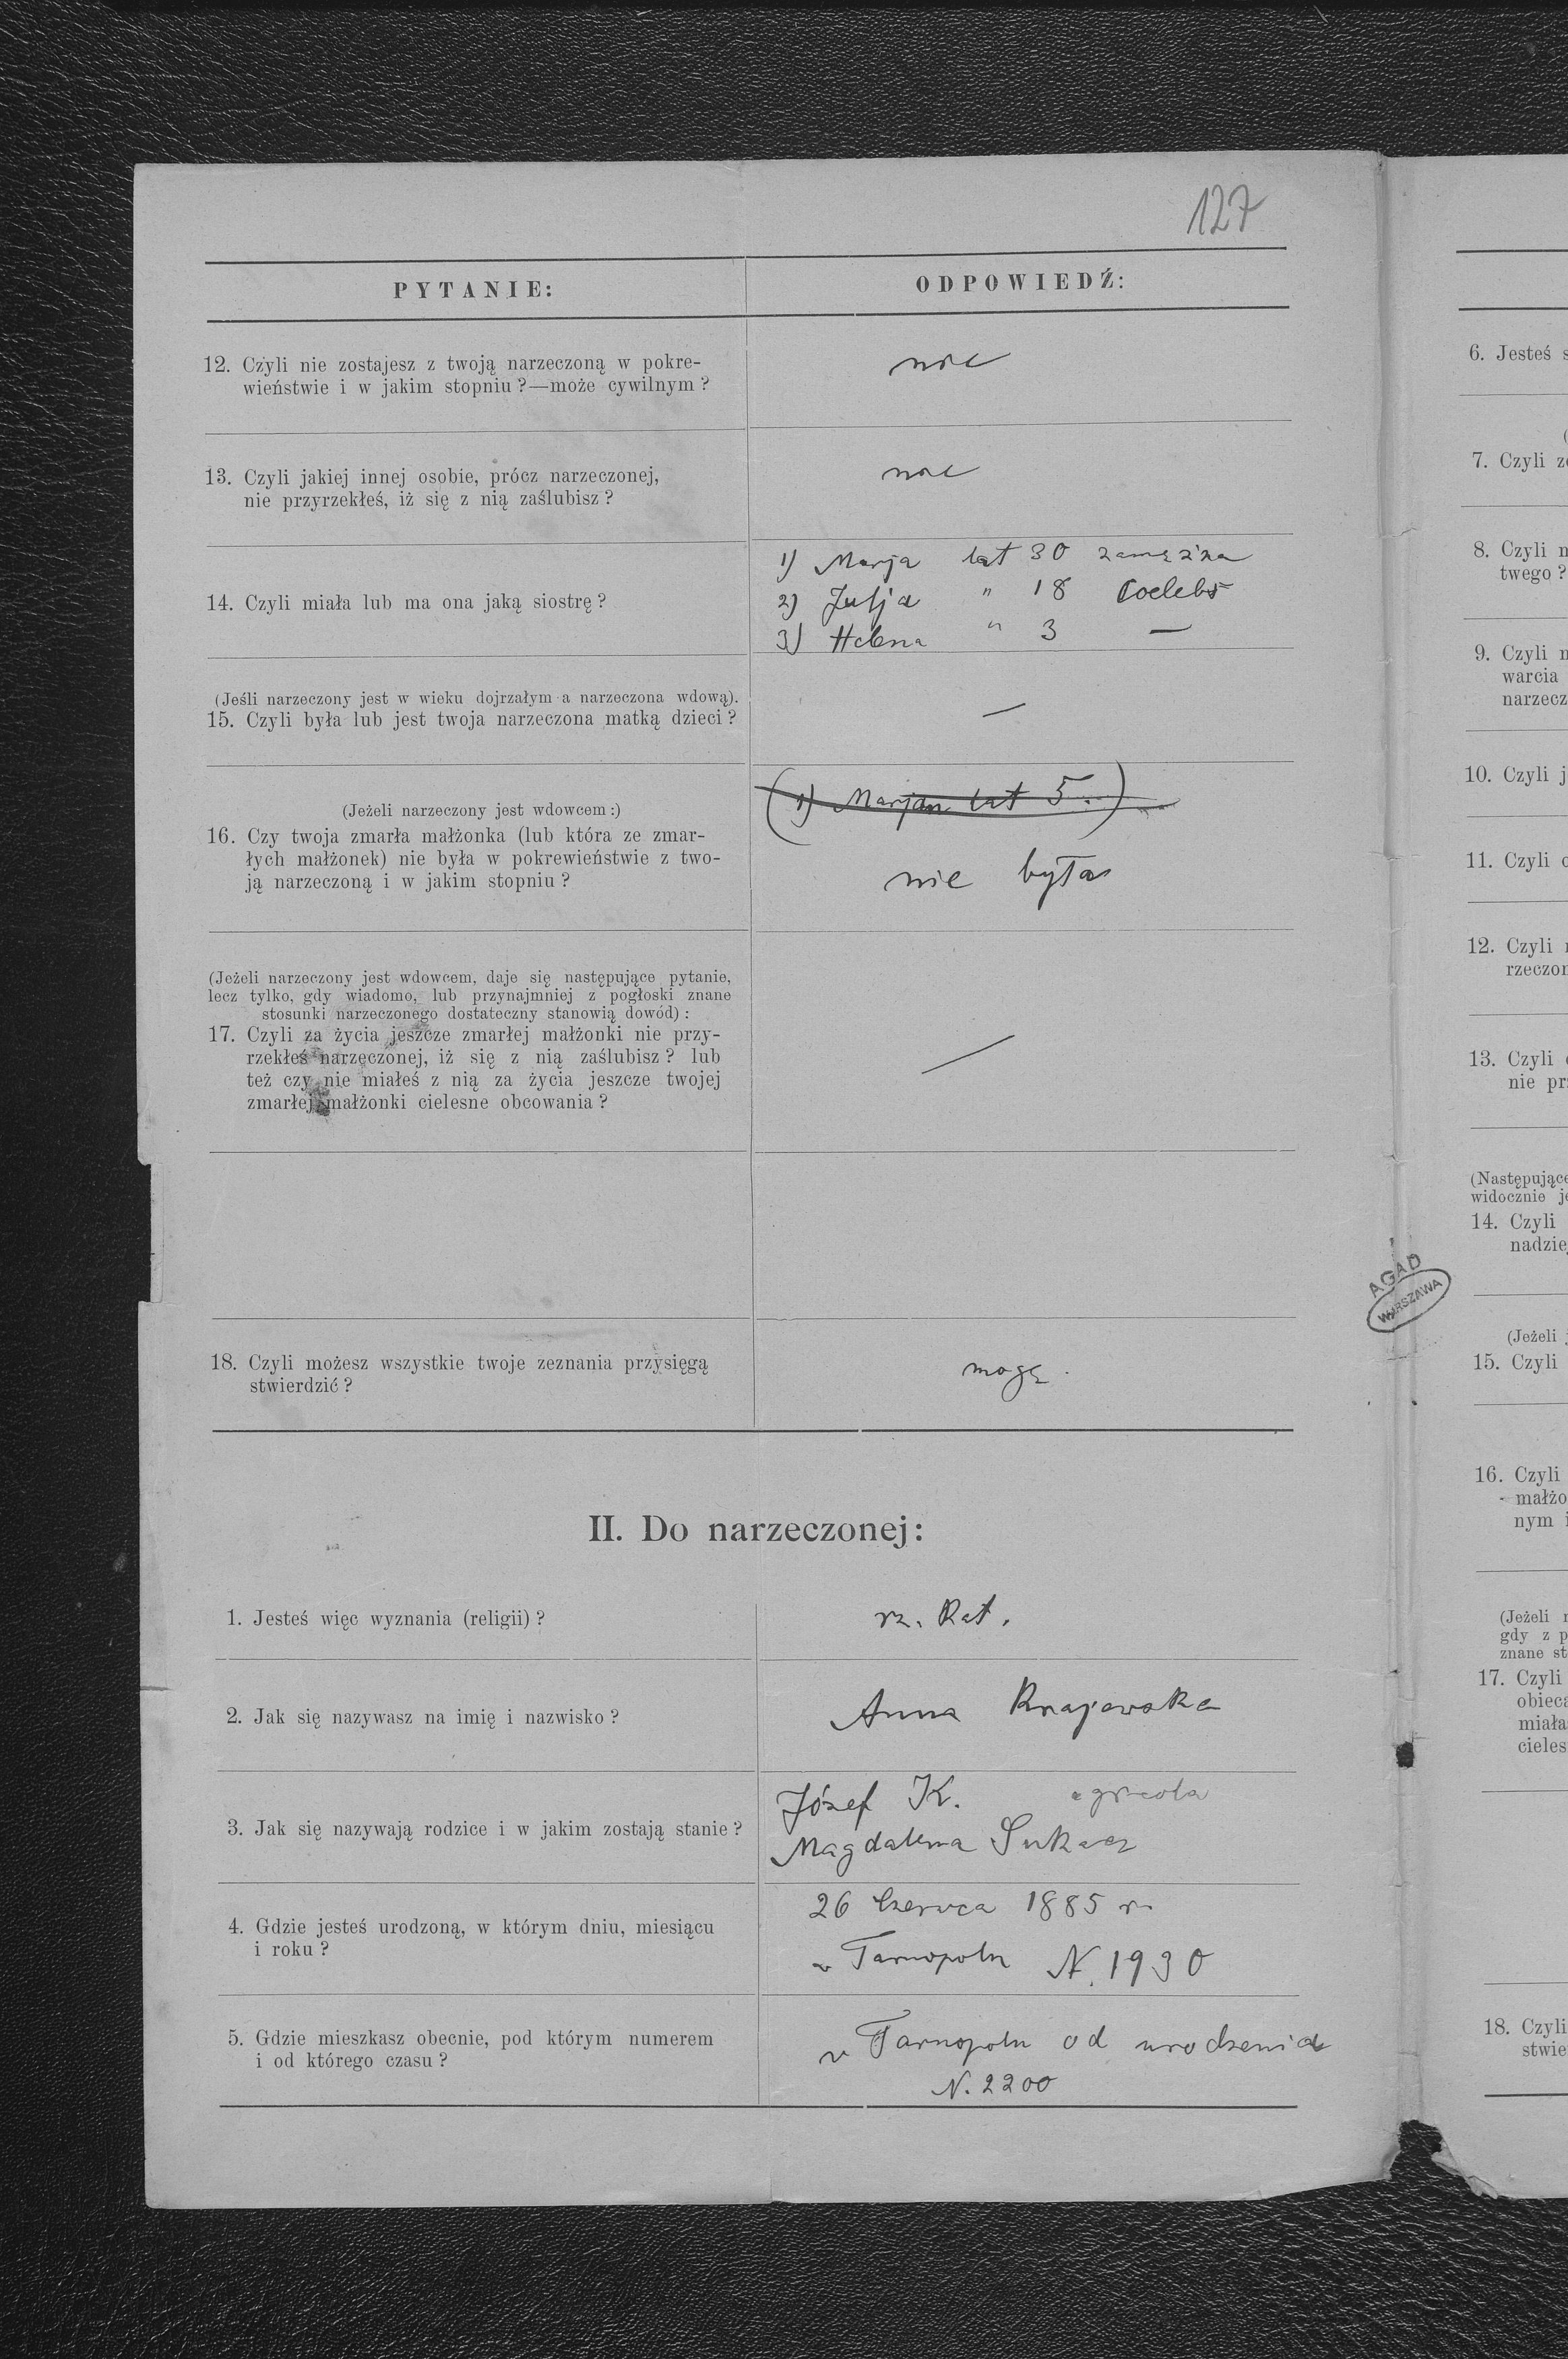 127
PYTANIE:
ODPOWIEDŹ:
12. Czyli nie zostajesz z twoją narzeczoną w pokre-
wieństwie i w jakim stopniu?—może cywilnym?
nie
13. Czyli jakiej innej osobie, prócz narzeczonej,
nie przyrzekłeś, iż się z nią zaślubisz?
nie
14. Czyli miała lub ma ona jaką siostrę?
1) Marja lat 30 zamężna
2) Julja " 18 coelebs
3) Helena " 3 —
(Jeśli narzeczony jest w wieku dojrzałym a narzeczona wdową).
15. Czyli była lub jest twoja narzeczona matką dzieci?
—
(Jeżeli narzeczony jest wdowcem:)
16. Czy twoja zmarła małżonka (lub która ze zmar-
łych małżonek) nie była w pokrewieństwie z two-
ją narzeczoną i w jakim stopniu?
(1) Marjan lat 5.)
nie była
(Jeżeli narzeczony jest wdowcem, daje się następujące pytanie,
lecz tylko, gdy wiadomo, lub przynajmniej z pogłoski znane
stosunki narzeczonego dostateczny stanowią dowód):
17. Czyli za życia jeszcze zmarłej małżonki nie przy-
rzekłeś narzeczonej, iż się z nią zaślubisz? lub
też czy nie miałeś z nią za życia jeszcze twojej
zmarłej małżonki cielesne obcowania?
—
18. Czyli możesz wszystkie twoje zeznania przysięgą
stwierdzić?
mogę.
II. Do narzeczonej:
1. Jesteś więc wyznania (religii)?
rz. kat.
2. Jak się nazywasz na imię i nazwisko?
Anna Krajewska
3. Jak się nazywają rodzice i w jakim zostają stanie?
Józef K. agricola
Magdalena Sukacz
4. Gdzie jesteś urodzoną, w którym dniu, miesiącu
i roku?
26 Czerwca 1885 r.
w Tarnopolu N. 1930
5. Gdzie mieszkasz obecnie, pod którym numerem
i od którego czasu?
w Tarnopolu od urodzenia
N. 2200
AGAD
WARSZAWA
6. Jesteś
7. Czyli
8. Czyli
twego?
9. Czyli
warcia
narzecz
10. Czyli
11. Czyli
12. Czyli
rzeczon
13. Czyli
nie
(Następujące
widocznie
14. Czyli
nadzie
(Jeżeli
15. Czyli
16. Czyli
małżo
nym
(Jeżeli
gdy z
znane
17. Czyli
obiec
miała
cieles
18. Czyli
stwie